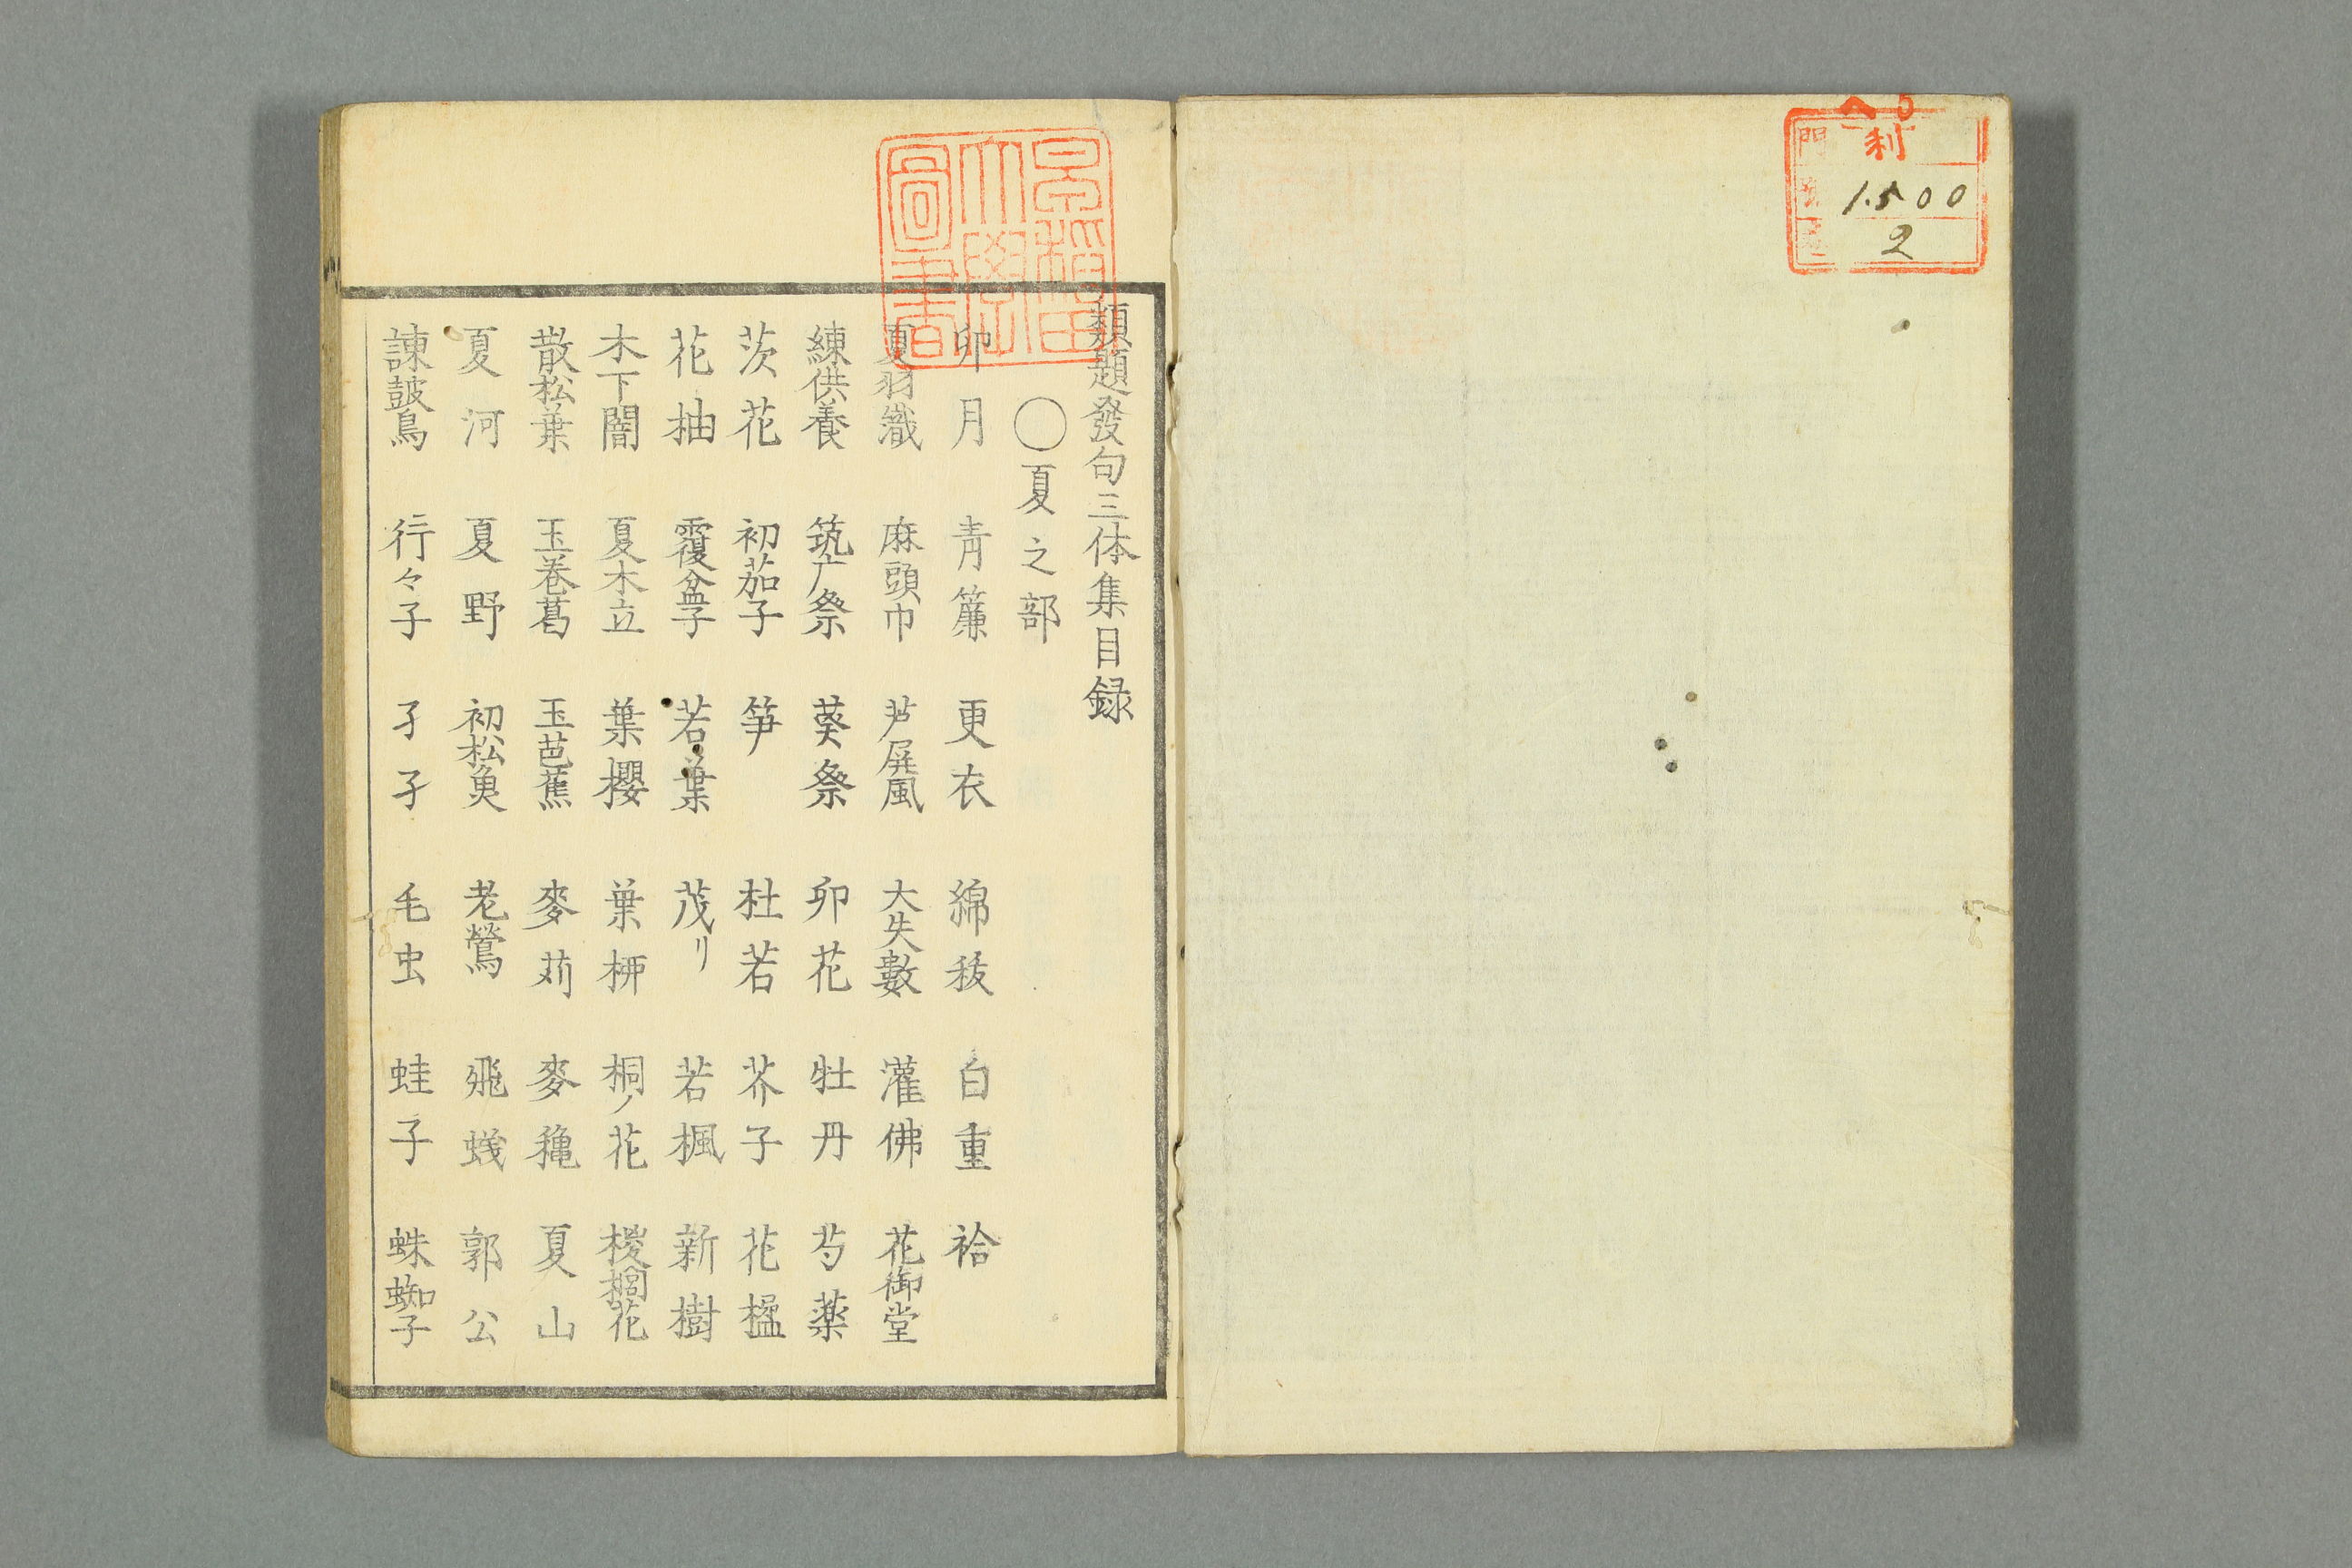 へ5
利
門
1500
2
早稲田
大學
圖書
類題發句三体集目録
〇夏之部
卯月 青簾 更衣 綿秡 白重 袷
夏羽織 麻頭巾 芦屏風 大矢數 灌佛 花御堂
練供養 筑广祭 葵祭 卯花 牡丹 芍薬
茨花 初茄子 笋 杜若 芥子 花楹
花柚 覆盆子 若葉 茂リ 若楓 新樹
木下闇 夏木立 葉櫻 葉柳 桐ノ花 椶櫚花
散松葉 玉巻葛 玉芭蕉 麥苅 麥穐 夏山
夏河 夏野 初松魚 老鶯 飛蟻 郭公
諫皷鳥 行々子 孑孑 毛虫 蛙子 蛛蜘子